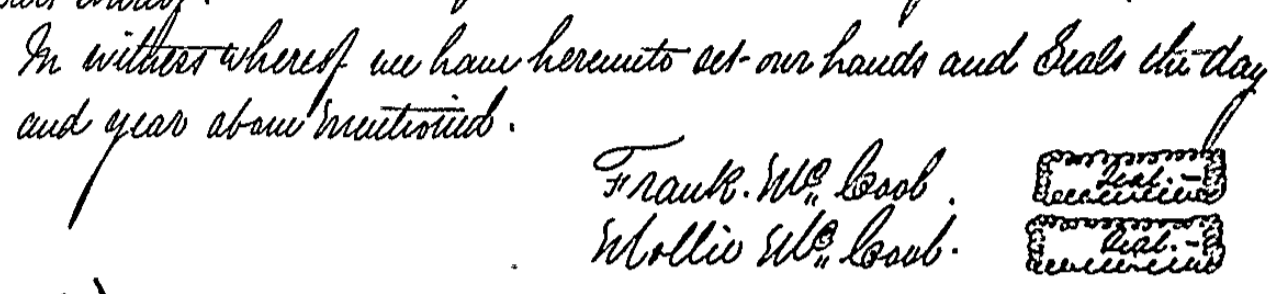 In witness whereof we have hereunto set our hands and Seals the day
and year above mentioned.
Frank. Mc Cool. Seal.
Mollie Mc Cool. Seal.